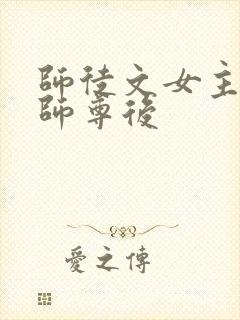 師徒文女主
師尊後
愛之傳